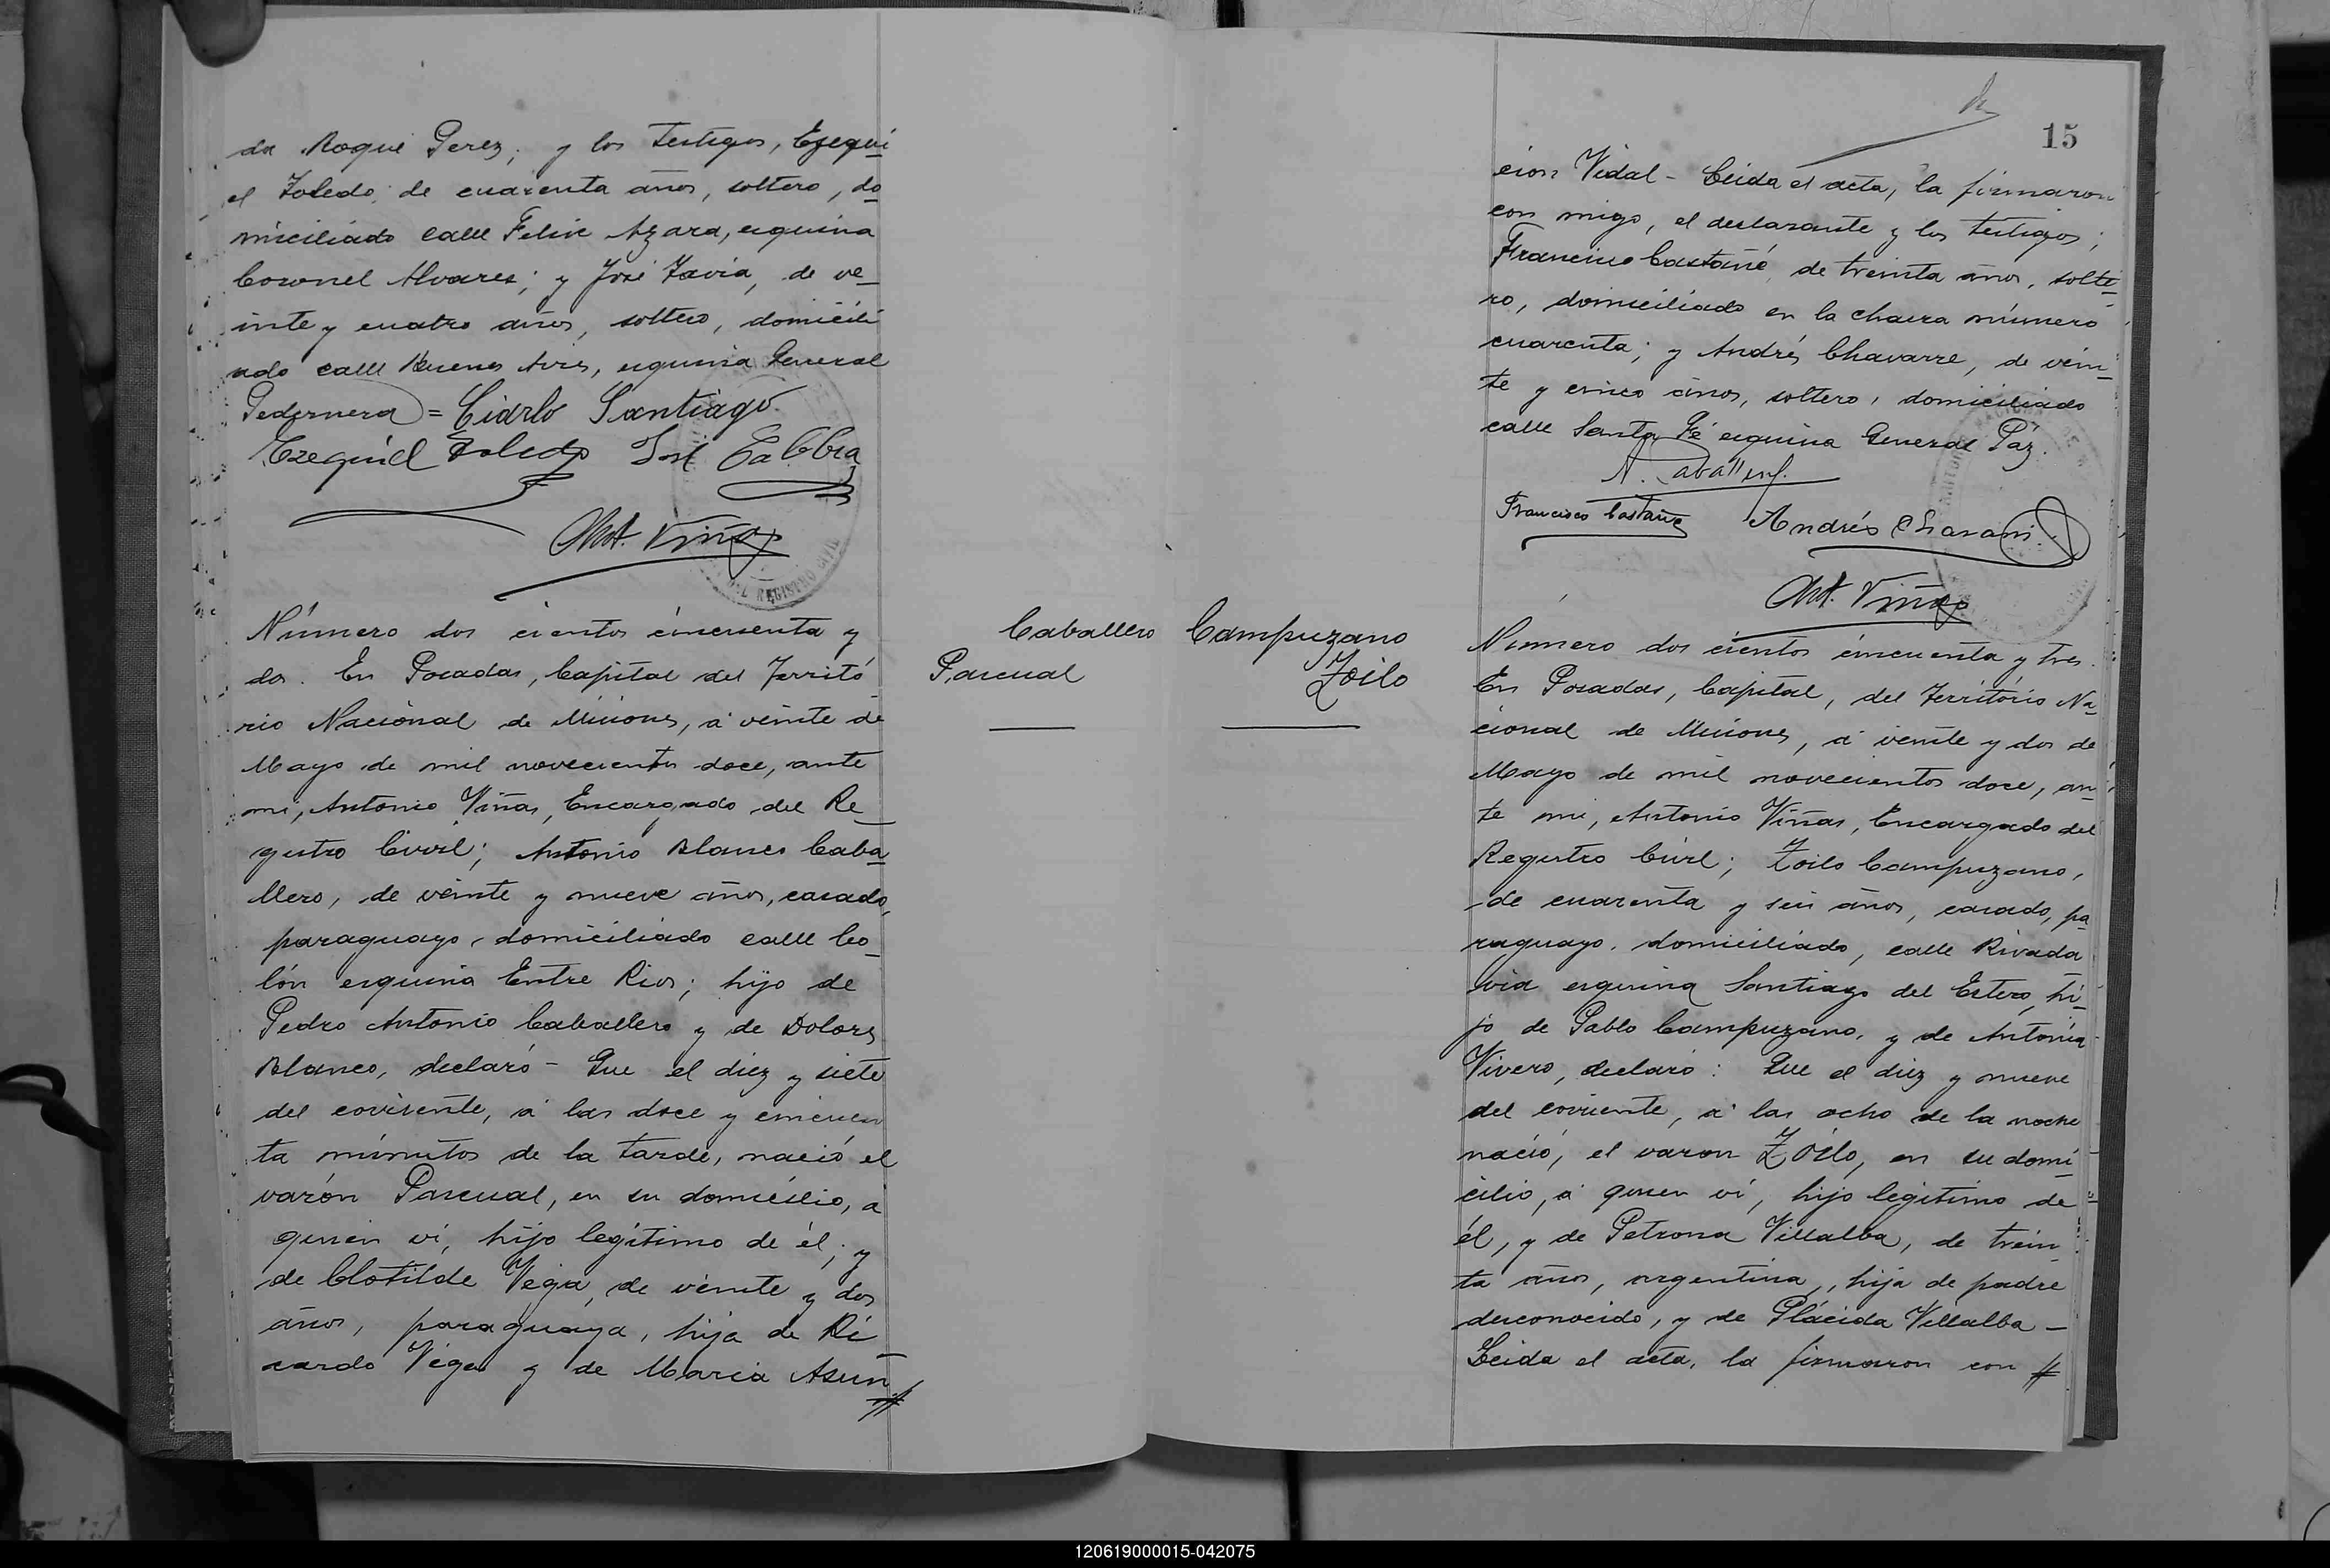 da Roque Perez; y los testigos, Ezequi
el Toledo, de cuarenta años, soltero, do
miciliado calle Felix Azara, esquina
Coronel Alvarez; y José Favia, de ve
inte y cuatro años, soltero, domicili
ado calle Buenos Aires, esquina General
Pedernera = Ciarlo Santiago
Ezequiel Toledo José
Ant. Viñas
REGISTRO CIVIL
Número dos cientos cincuenta y
dos. En Posadas, Capital del Territó
rio Nacional de Misiones, á veinte de
Mayo de mil novecientos doce, ante
mi, Antonio Viñas, Encargado del Re
gistro Civil; Antonio Blanco Caba
llero, de veinte y nueve años, casado,
paraguayo, domiciliado calle Co
lón esquina Entre Rios; hijo de
Pedro Antonio Caballero y de Dolores
Blanco, declaró - Que el diez y siete
del corriente, á las doce y cincuen
ta minutos de la tarde, nació el
varón Pascual, en su domicilio, a
quien ví, hijo legítimo de él; y
de Clotilde Vega, de veinte y dos
años, paraguaya, hija de Ri
cardo Vega y de Maria Asun
Caballero
Pascual
Campuzano
Zoilo
15
cion Vidal - Leida el acta, la firmaron
con migo, el declarante y los testigos;
Francisco Castañé, de treinta años, solte
ro, domiciliado en la chacra número
cuarenta; y Andrés Chavarre, de vein
te y cinco años, soltero, domiciliado
calle Santa Fé esquina General Páz.
A. Caballero
Francisco Castañe Andrés Chavarri
Ant. Viñas
Número dos cientos cincuenta y tres.
En Posadas, Capital, del Território Na
cional de Misiones, á veinte y dos de
Mayo de mil novecientos doce, an
te mi, Antonio Viñas, Encargado del
Registro Civil; Zoilo Campuzano,
de cuarenta y seis años, casado, pa
raguayo, domiciliado, calle Rivada
via esquina Santiago del Estero, hi
jo de Pablo Campuzano, y de Antonia
Vivero, declaró: Que el diez y nueve
del corriente, á las ocho de la noche
nació, el varon Zoilo, en su domi
cilio, á quien ví, hijo legítimo de
él, y de Petrona Villalba, de trein
ta años, argentina, hija de padre
desconocido, y de Plácida Villalba -
Leida el acta, la firmaron con
120619000015-042075